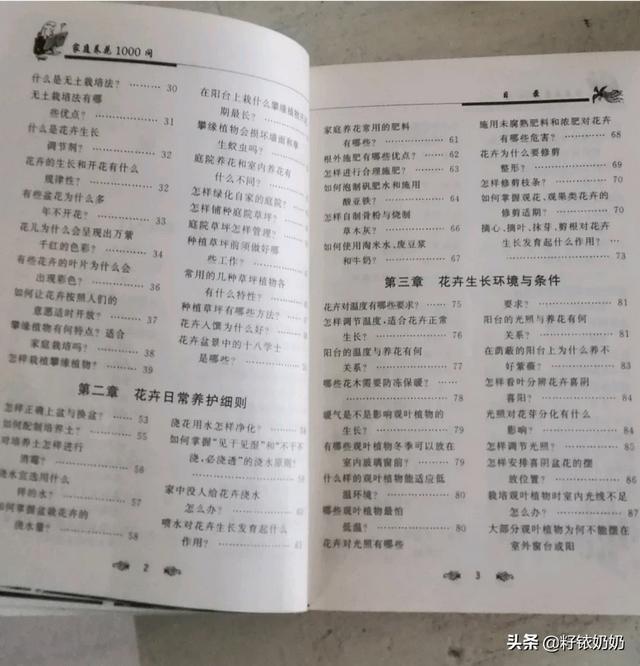 家庭养花1000问
什么是无土栽培法? ……… 30
无土栽培方法有哪
些优点? ……… 31
什么是花卉生长
调节剂? ……… 32
花卉的生长和开花有什么
规律性? ……… 32
有些盆花为什么多
年不开花? ……… 33
花儿为什么会呈现出万紫
千红的色彩? ……… 34
有些花卉的叶片为什么会
出现彩色? ……… 36
如何让花卉按照人们的
意愿适时开放? ……… 37
攀缘植物有何特点?适合
家庭栽培吗? ……… 38
怎样栽植攀缘植物? ……… 39
在阳台上栽什么攀缘植物
期最长?
攀缘植物会损坏墙面和
生蚊虫吗? ………
庭院养花和室内养花有
什么不同? ………
怎样绿化自家的庭院?
怎样铺种庭院草坪?
庭院草坪怎样管理?
种植草坪前须做好哪
些工作? ………
常用的几种草坪植物各
有什么特性? ………
种植草坪有哪些方法?
花卉人惯为什么好?
花卉盆景中的十八学士
是哪些? ………
第二章 花卉日常养护细则
怎样正确上盆与换盆? …… 53
如何配制培养土? ……… 55
对培养土怎样进行
消霉? ……… 56
浇水宜选用什么
样的水? ……… 57
如何掌握盆栽花卉的
浇水量? ……… 58
浇花用水怎样净化? ……
如何掌握“见干见湿”和“不干不
浇,必浇透”的浇水原则?
家中没人给花卉浇水
怎么办? ………
喷水对花卉生长发育起什么
作用? ………
2
目 录
家庭养花常用的肥料
有哪些? ……… 61
根外施肥有哪些优点? …… 62
怎样进行合理施肥? ……… 63
如何泡制矾肥水和施用
酸亚铁? ……… 64
怎样自制骨粉与烧制
草木灰? ……… 66
如何使用淘米水、废豆浆
和牛奶? ……… 67
施用未腐熟肥料和浓肥对花卉
有哪些危害? ……… 68
花卉为什么要修剪
整形? ……… 69
怎样修剪枝条? ……… 70
如何掌握观花、观果类花卉的
修剪适期? ……… 71
摘心、摘叶、抹芽、剪根对花卉
生长发育起什么作用? ……
……… 73
第三章 花卉生长环境与条件
花卉对温度有哪些要求? …… 75
怎样调节温度,适合花卉正常
生长? ……… 76
阳台的温度与养花有何
关系? ……… 77
哪些花木需要防冻保暖? ……
……… 78
暖气是不是影响观叶植物的
生长? ……… 79
有哪些观叶植物冬季可以放在
室内玻璃窗前? ……… 79
什么样的观叶植物能适应低
温环境? ……… 80
哪些观叶植物最怕
低温? ……… 80
花卉对光照有哪些
要求? ……… 81
阳台的光照与养花有何
关系? ……… 81
在荫蔽的阳台上为什么养不
好紫薇? ……… 83
怎样看叶分辨花卉喜阴
喜阳? ……… 84
光照对花芽分化有什么
影响? ……… 84
怎样调节光照? ……… 85
怎样安排喜阴盆花的摆
放位置? ……… 86
栽培观叶植物时室内光线不足
怎么办? ……… 87
大部分观叶植物为何不能摆在
室外窗台或阳
3
头条 @籽铱奶奶